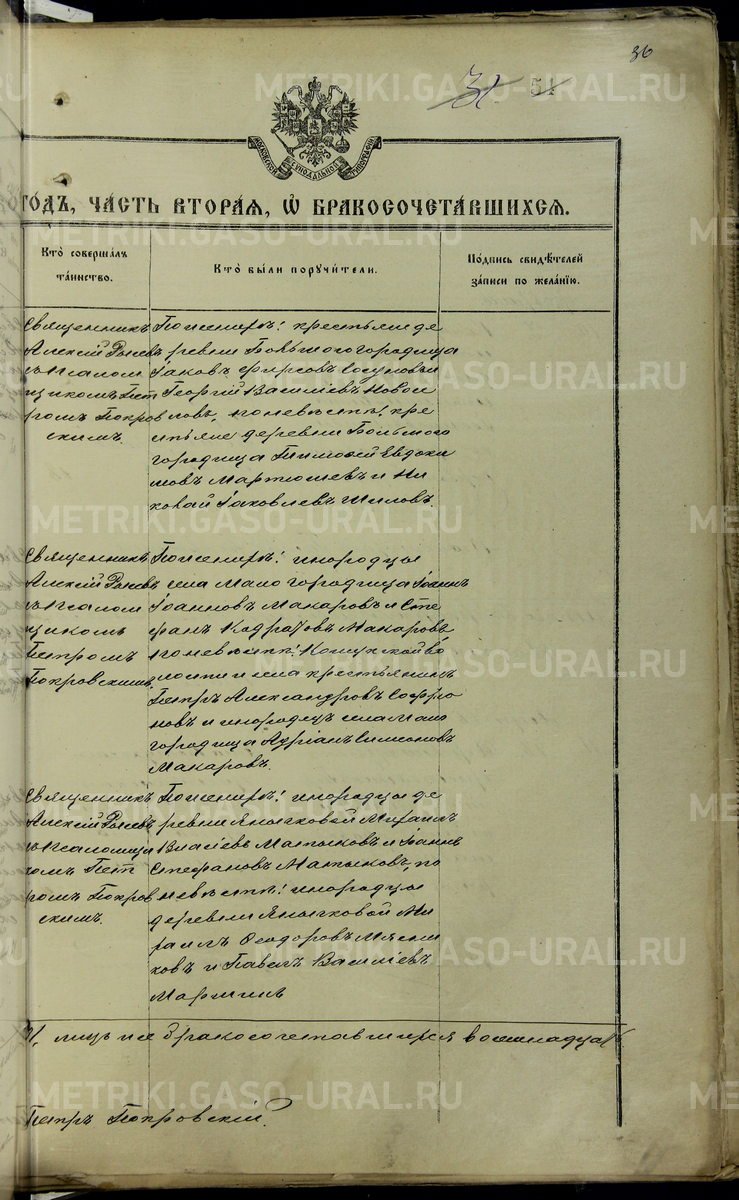 36
31 51
МОСКОВСКОЙ СѴНОДАЛЬНОЙ ТИПОГРАФІИ
ГОДЪ, ЧАСТЬ ВТОРАЯ, Ѡ БРАКОСОЧЕТАВШИХСЯ.
Кто совершалъ таинство.
Кто были поручители.
Подпись свидѣтелей записи по желанію.
Священникъ
Алексій
съ псалом
щикомъ Пет
ромъ Покров
скимъ.
По женихѣ: крестьяне де
ревни Большого городища
Іаковъ Фирсовъ Сосуновъ и
Георгій Василіевъ Новосе
ловъ, по невѣстѣ: кре
стьяне деревни Большого
городища Тимоѳей Евдоки
мовъ Мартюшевъ и Ни
колай Іаковлевъ Шиловъ.
Священникъ
Алексій
съ псалом
щикомъ
Петромъ
Покровскимъ.
По женихѣ: инородцы
села Мало городища Іоаннъ
Іоанновъ Макаровъ и Сте
фанъ Кодратовъ Макаровъ,
по невѣстѣ: Кошукской во
лости и села крестьянинъ
Петръ Александровъ Софро
новъ и инородецъ села Мало
городища Адріанъ Симеоновъ
Макаровъ.
Священникъ
Алексій
съ псаломщи
комъ Пет
ромъ Покров
скимъ.
По женихѣ: инородцы де
ревни Янычковой Михаилъ
Власіевъ Матыковъ и Іоаннъ
Стефановъ Матыковъ, по
невѣстѣ: инородцы
деревни Янычковой Ми
хаилъ Ѳеодоровъ Мясни
ковъ и Павелъ Василіевъ
Маршинъ
лицъ же бракосочетавшихся восемнадцать
Петръ Покровскій.
METRIKI.GASO-URAL.RU